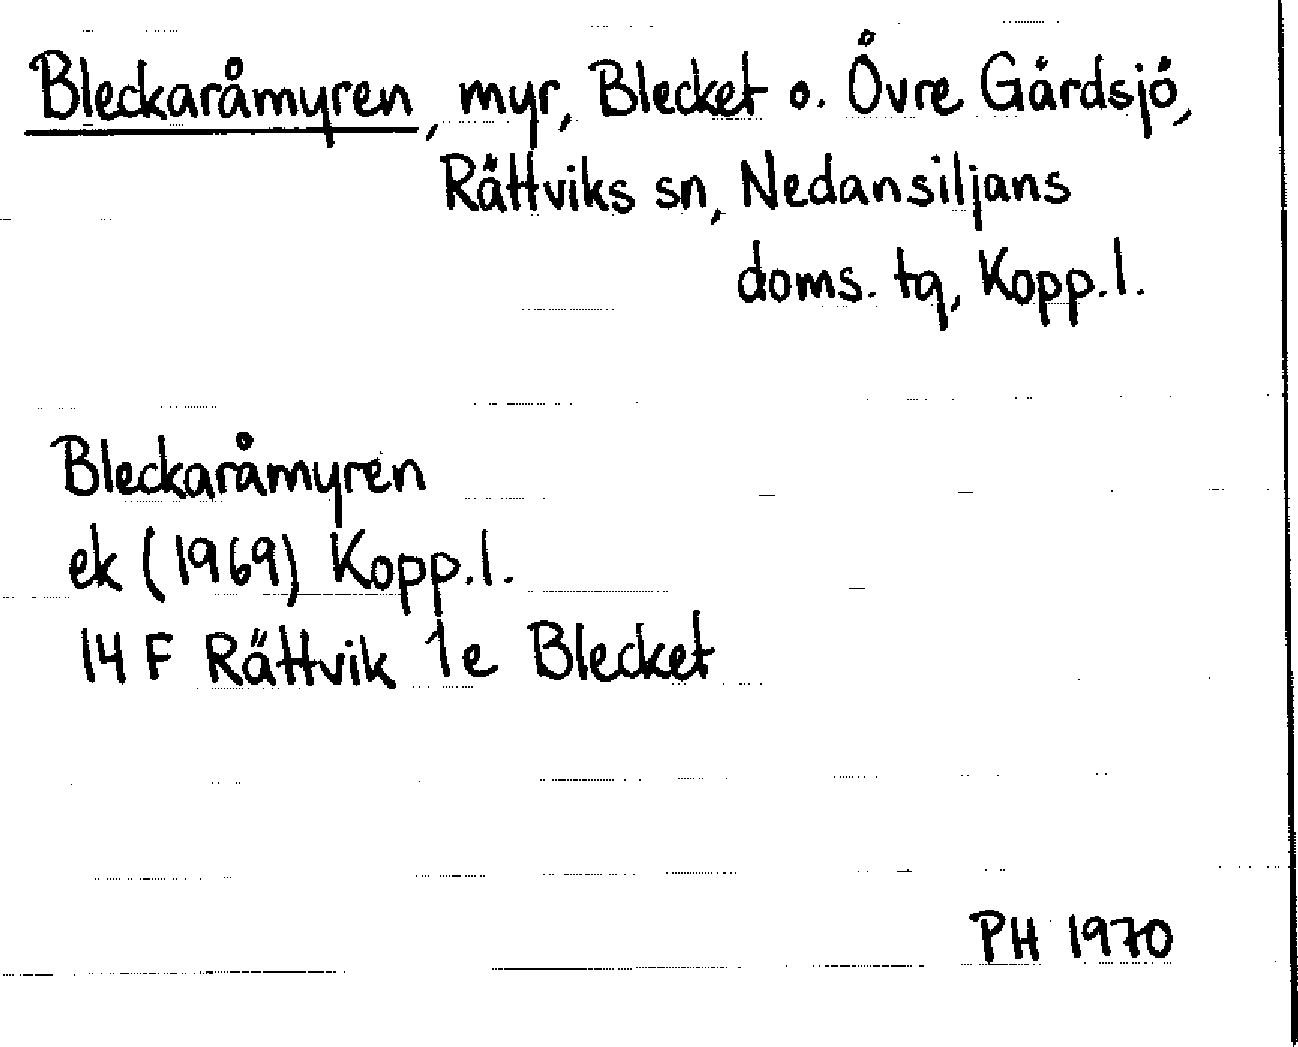 Bleckaråmyren, myr, Blecket o. Övre Gärdsjö,
Rättviks sn, Nedansiljans
doms. tg, Kopp.l.
Bleckaråmyren
ek (1969) Kopp.l.
14 F Rättvik 1e Blecket
PH 1970